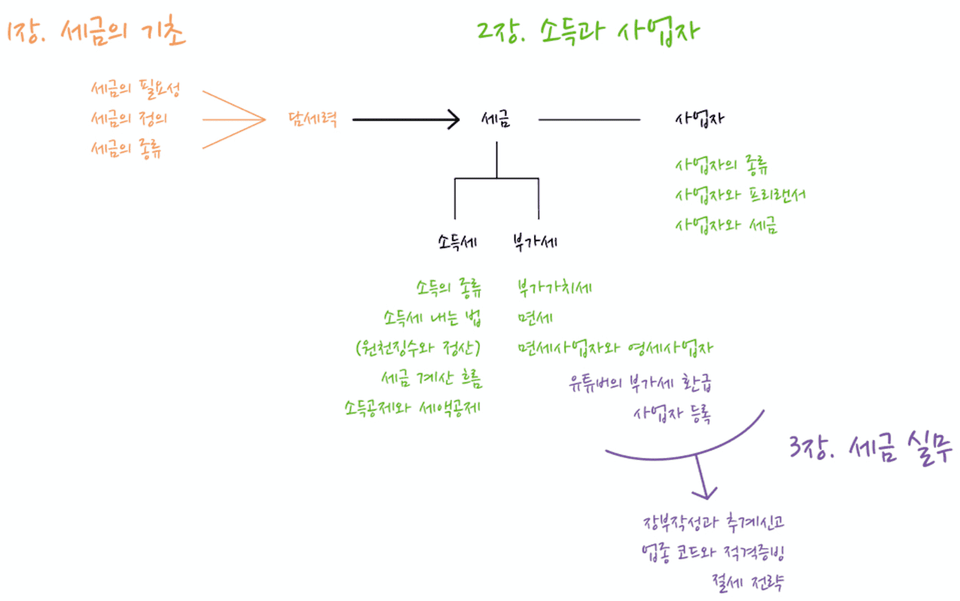 1장. 세금의 기초
세금의 필요성
세금의 정의
세금의 종류
담세력
2장. 소득과 사업자
세금
사업자
사업자의 종류
사업자와 프리랜서
사업자와 세금
소득세
부가세
소득의 종류
소득세 내는 법
(원천징수와 정산)
세금 계산 흐름
소득공제와 세액공제
부가가치세
면세
면세사업자와 영세사업자
유튜버의 부가세 환급
사업자 등록
3장. 세금 실무
장부작성과 추계신고
업종 코드와 적격증빙
절세 전략